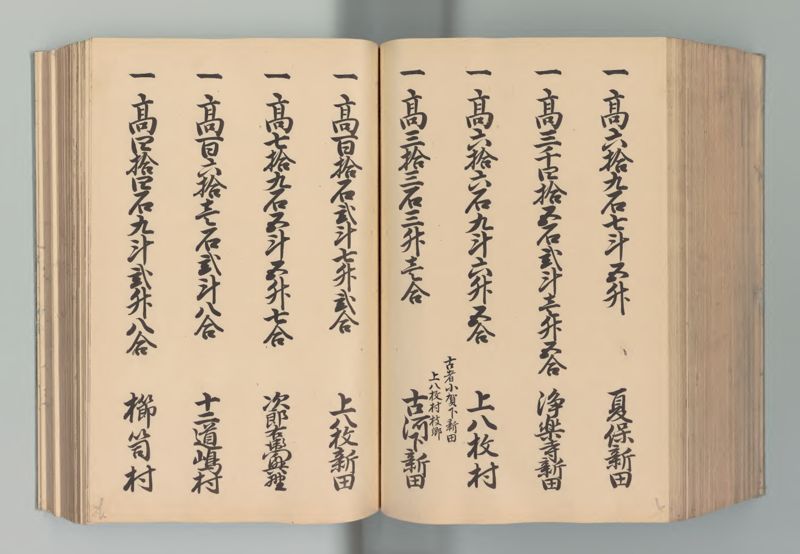 一 高六拾九石七斗五升
夏保新田
一 高三千四拾五石弐斗壱升五合
浄楽寺新田
一 高六拾六石九斗六升五合
上八枚村
一 高三拾三石三升壱合
古者小賀下新田
上八枚村枝郷
古河下新田
一 高百拾石弐斗七升弐合
上八枚新田
一 高七拾九石五斗五升七合
次郎右衛門興野
一 高百六拾壱石弐斗八合
十二道嶋村
一 高四拾四石九斗弐升八合
櫛笥村